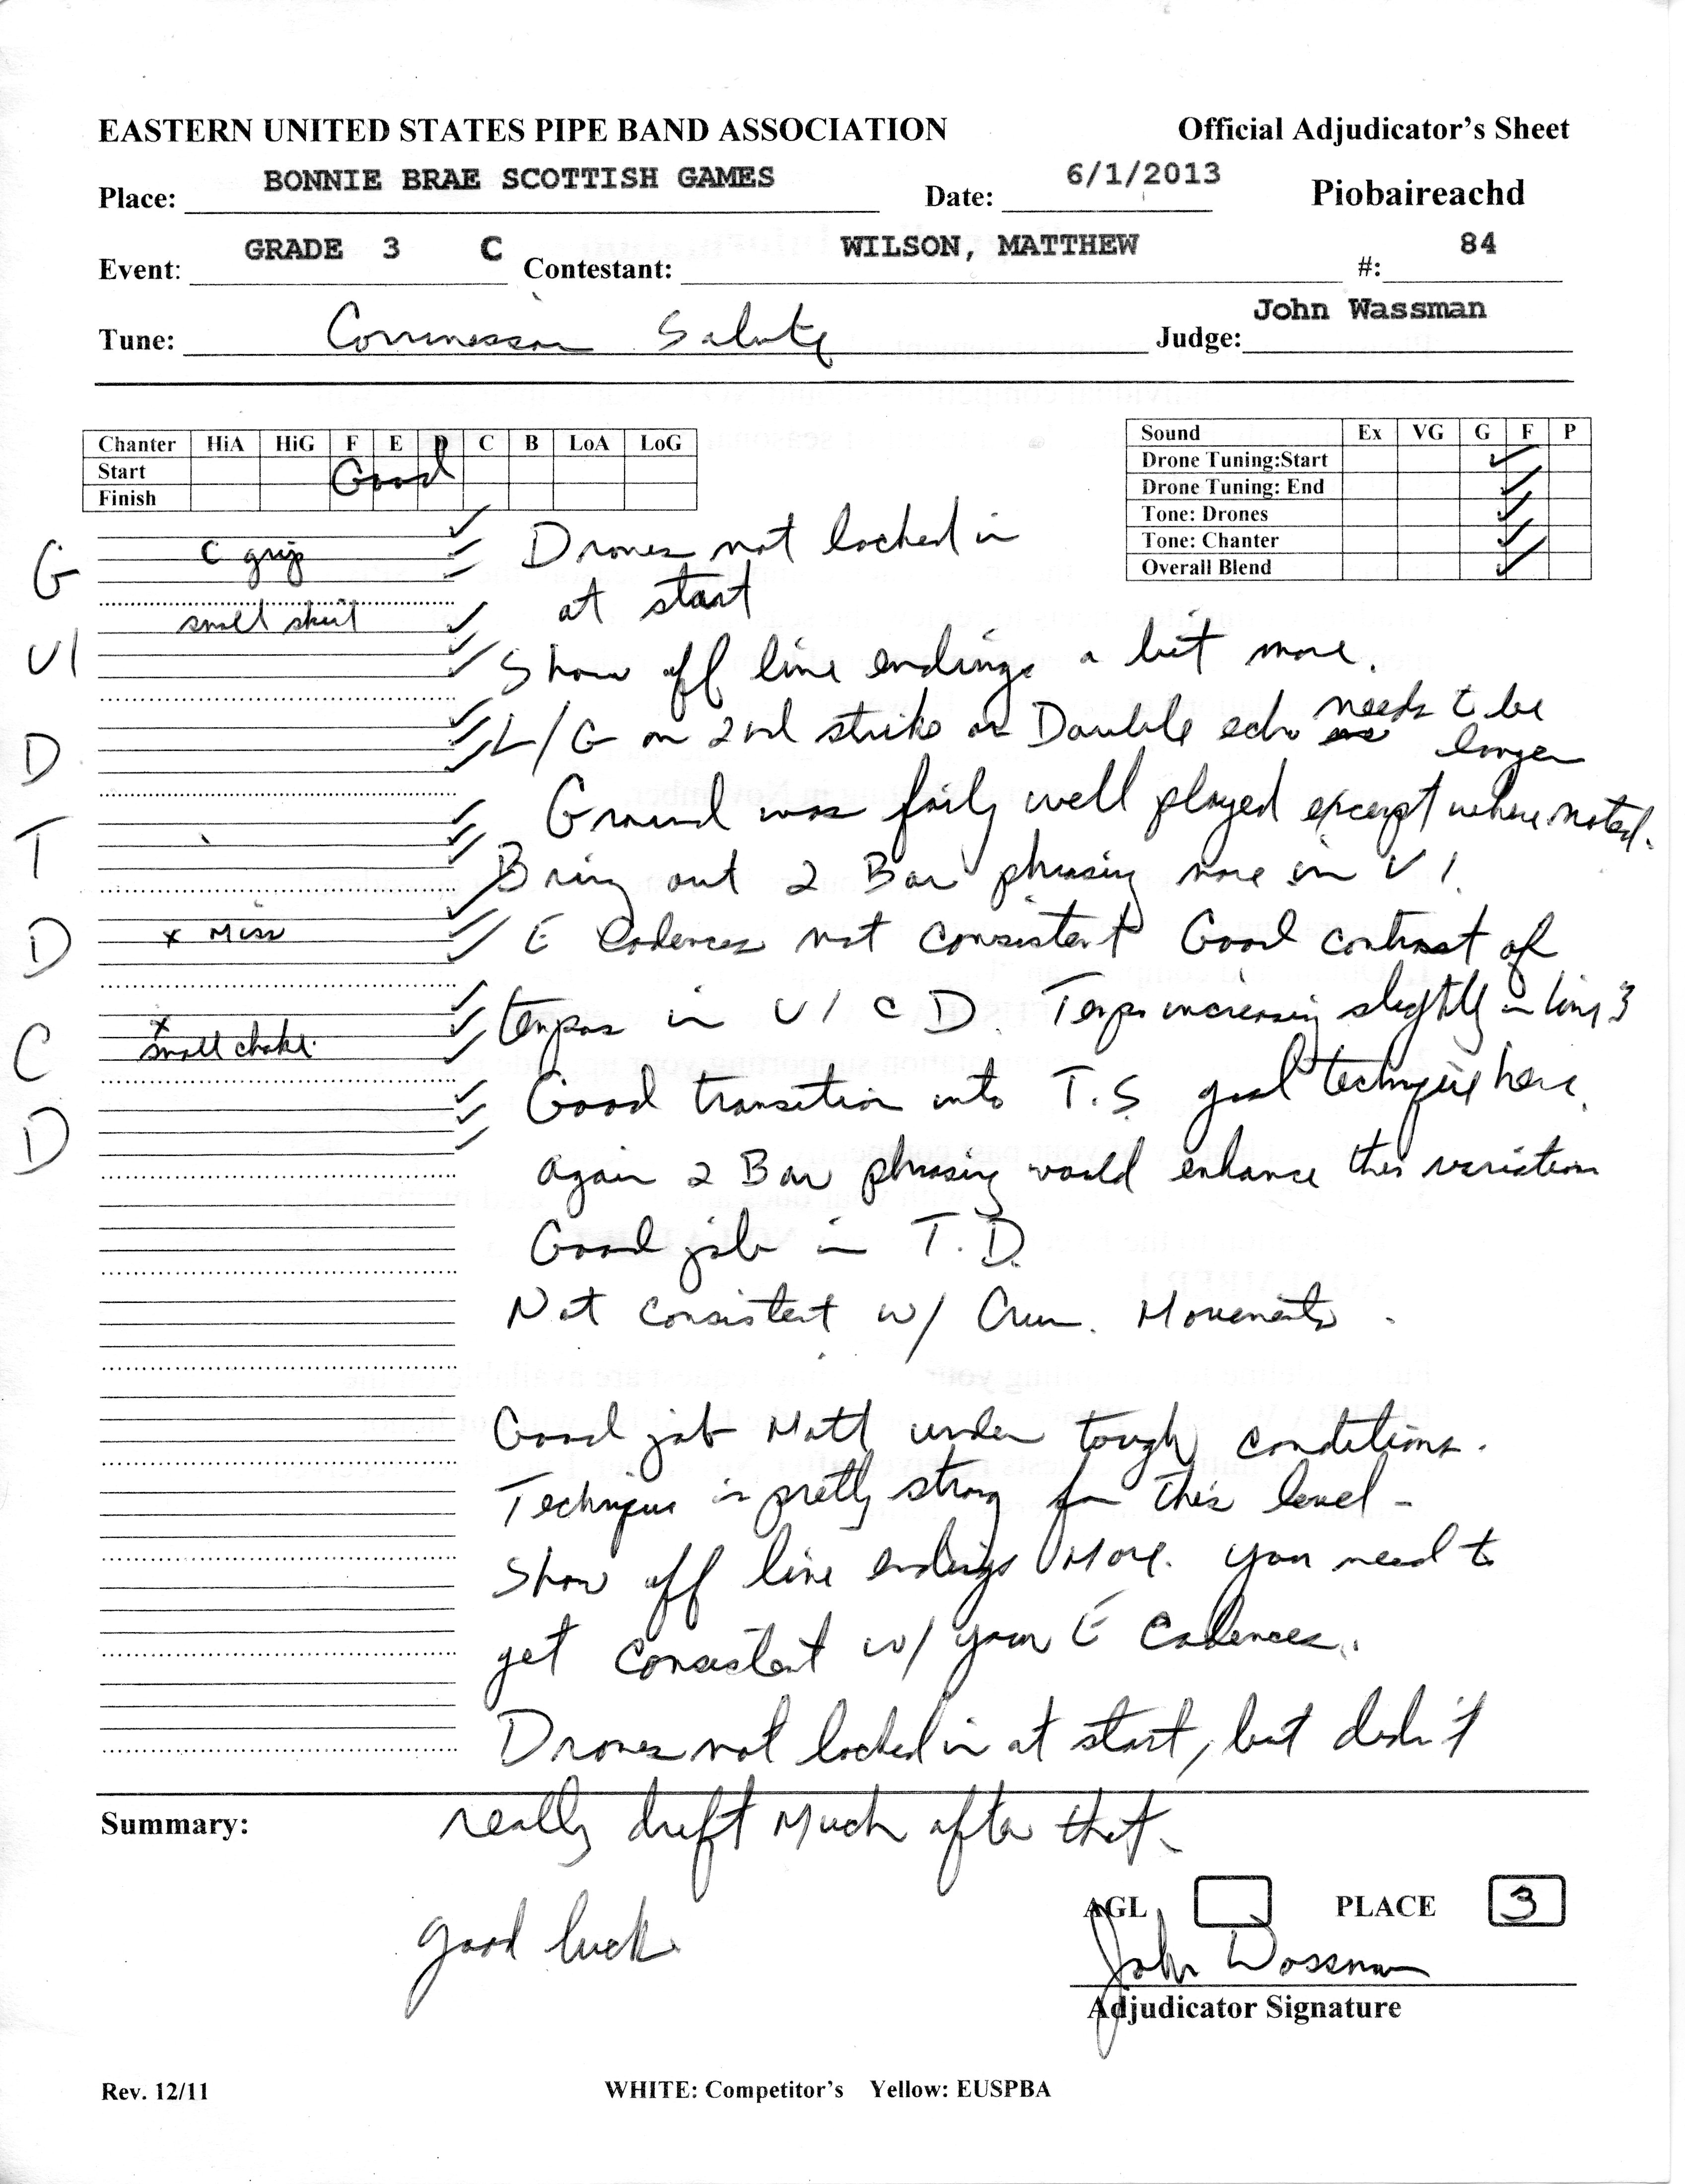 EASTERN UNITED STATES PIPE BAND ASSOCIATION Official Adjudicator's Sheet
Place: BONNIE BRAE SCOTTISH GAMES Date: 6/1/2013 Piobaireachd
Event: GRADE 3 C Contestant: WILSON, MATTHEW #: 84
Tune: Salute Judge: John Wassman
Chanter HiA HiG F E D C B LoA LoG
Start Good
Finish
Sound Ex VG G F P
Drone Tuning:Start ✓
Drone Tuning: End ✓
Tone: Drones ✓
Tone: Chanter ✓
Overall Blend ✓
G C grip
small
V1
D
T
D x Miss
C x small choke.
D
Drones not locked in
at start
Show off line endings a bit more.
L/G on 2nd strike on Double echo needs to be
longer
Ground was fairly well played except where noted.
Bring out 2 Bar phrasing more in V1.
E Cadences not consistent Good contrast of
tempos in V1 D. Tempo increasing slightly in line 3
Good transition into T.S good technique here.
again 2 Bar phrasing would enhance this variation
Good job in T.D.
Not consistent w/ Crun. Movements.
Good job Matt under tough conditions.
Technique is pretty strong for this level -
Show off line endings More. you need to
get consistent w/ your E Cadences.
Drones not locked in at start, but didn't
Summary: really drift Much after that.
good luck
AGL PLACE 3
John Wassman
Adjudicator Signature
Rev. 12/11 WHITE: Competitor's Yellow: EUSPBA